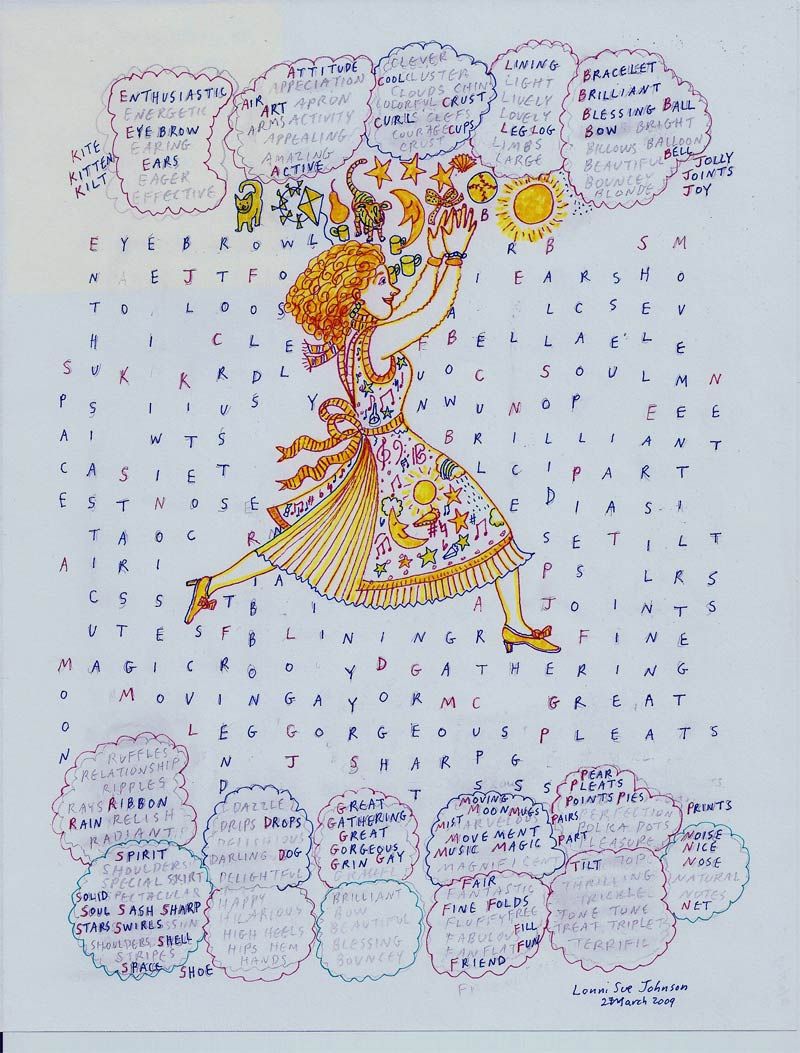 ENTHUSIASTIC
ENERGETIC
EYE BROW
EARING
EARS
EAGER
EFFECTIVE
KITE
KITTEN
KILT
ATTITUDE
APPECIATION
AIR ART APRON
ARMS ACTIVITY
APPEALING
AMAZING
ACTIVE
CLEVER
COOL CLUSTER
CLOUDS CHIN
COLORFUL CRUST
CURL CLEFS
COURAGE CUPS
CRUST
LINING
LIGHT
LIVELY
LOVELY
LEG LOG
LIMBS
LARGE
BRACELET
BRILLIANT
BLESSING BALL
BOW BRIGHT
BILLOWS BALLOON
BEAUTIFUL BELL
BOUNCEY
BLONDE
JOLLY
JOINTS
JOY
B
E Y E B R O W L R B S M
N A E J T F O I E A R S H O
T O L O O S A L C S E V
H I C L E E B E L L A E L E
S U K K R D L U O C S O U L M N
P S I I U S Y N W U N O P E E E
A I W T S B R I L L I A N T
C A S I E T L C I P A R T T
E S T N O S E E D I A S I
T A O C R N S E T I L T
A I R I I A P S L R S
C S S T B I A J O I N T S
U T E S F B L I N I N G R F I N E
M A G I C R O O Y D G A T H E R I N G
O M O V I N G A Y O R M C G R E A T
O L E G G O R G E O U S P L E A T S
N N J S H A R P G
D T S S S
RUFFLES
RELATIONSHIP
RIPPLES
RAYS RIBBON
RAIN RELISH
RADIANT
SPIRIT
SHOULDERS
SPECIAL SKIRT
SOLID SPECTACULAR
SOUL SASH SHARP
STARS SWIRLS
SHOULDERS SHELL
STRIPES
SPACE SHOE
DAZZLE
DRIPS DROPS
DELICIOUS
DARLING DOG
DELIGHTFUL
HAPPY
HILARIOUS
HIGH HEELS
HIPS HEM
HANDS
GREAT
GATHERING
GREAT
GORGEOUS
GRIN GAY
BRILLIANT
BOW
BEAUTIFUL
BLESSING
BOUNCEY
MOVING
MOON MUGS
MIST MARVEL
MOVEMENT
MUSIC MAGIC
MAGNIFICENT
FAIR
FANTASTIC
FINE FOLDS
FLUFFY FREE
FABULOUS FILL
FAN FLAT FUN
FRIEND
PEAR
PLEATS
POINTS PIES
PAIRS PERFECTION
POLKA DOTS
PART PLEASURE
TILT TOP
THRILLING
TRICKLE
TONE TONE
TREAT TRIPLET
TERRIFIC
PRINTS
NOISE
NICE
NOSE
NATURAL
NOTES
NET
Lonni Sue Johnson
23 March 2009